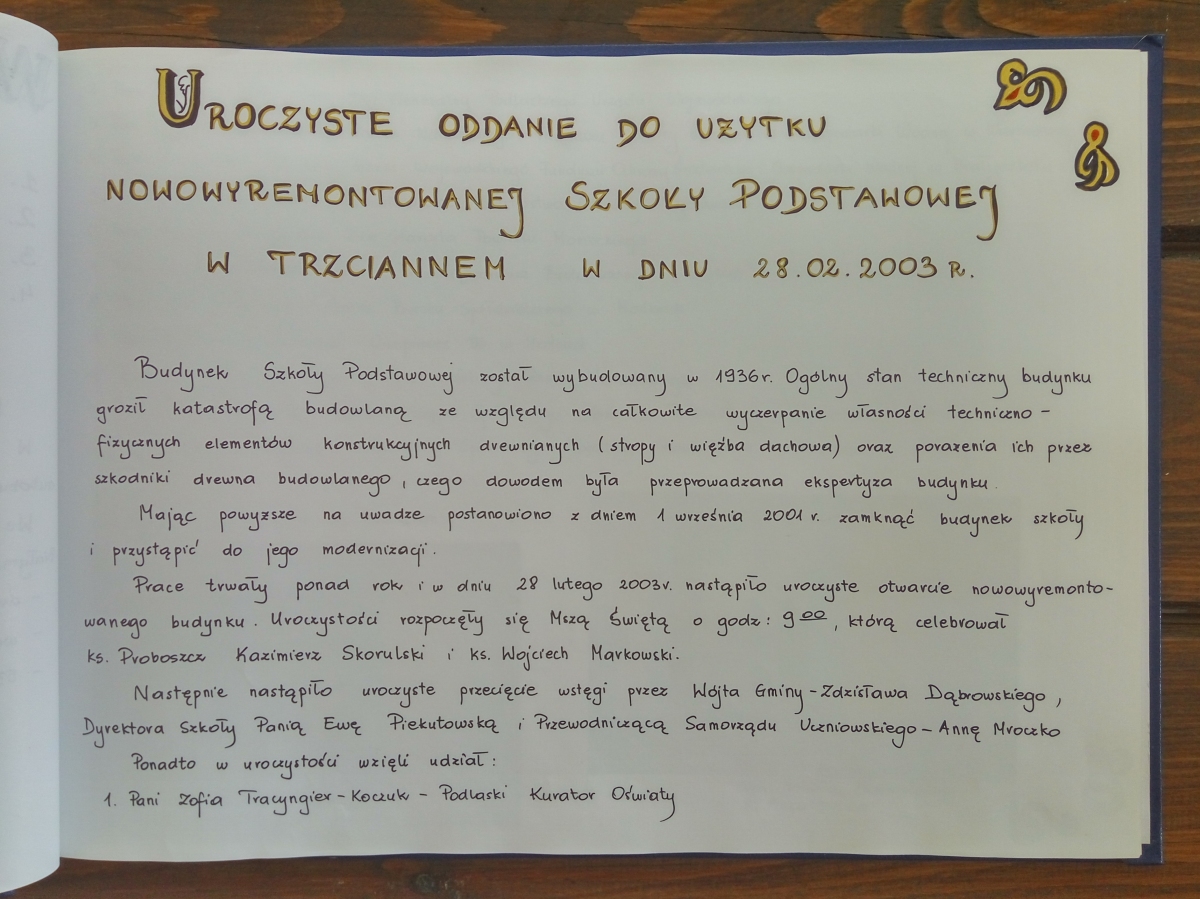 UROCZYSTE ODDANIE DO UŻYTKU
NOWOWYREMONTOWANEJ SZKOŁY PODSTAWOWEJ
W TRZCIANNEM W DNIU 28.02.2003 R.
Budynek Szkoły Podstawowej został wybudowany w 1936r. Ogólny stan techniczny budynku
groził katastrofą budowlaną ze względu na całkowite wyczerpanie własności techniczno-
fizycznych elementów konstrukcyjnych drewnianych (stropy i więźba dachowa) oraz porażenia ich przez
szkodniki drewna budowlanego, czego dowodem była przeprowadzana ekspertyza budynku.
Mając powyższe na uwadze postanowiono z dniem 1 września 2001 r. zamknąć budynek szkoły
i przystąpić do jego modernizacji.
Prace trwały ponad rok i w dniu 28 lutego 2003r. nastąpiło uroczyste otwarcie nowowyremonto-
wanego budynku. Uroczystości rozpoczęły się Mszą Świętą o godz: 9 00, którą celebrował
ks. Proboszcz Kazimierz Skorulski i ks. Wojciech Markowski.
Następnie nastąpiło uroczyste przecięcie wstęgi przez Wójta Gminy - Zdzisława Dąbrowskiego,
Dyrektora Szkoły Panią Ewę Piekutowską i Przewodniczącą Samorządu Uczniowskiego - Annę Mroczko
Ponadto w uroczystości wzięli udział:
1. Pani Zofia Tracyngier-Koczuk - Podlaski Kurator Oświaty